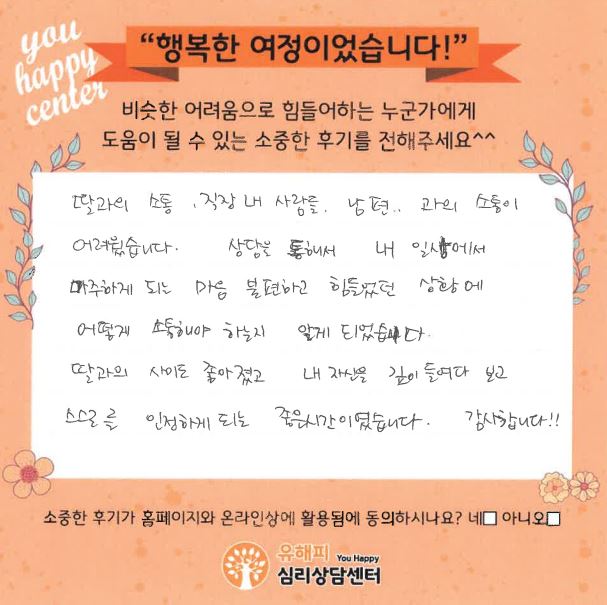 you
happy
center
“행복한 여정이었습니다!”
비슷한 어려움으로 힘들어하는 누군가에게
도움이 될 수 있는 소중한 후기를 전해주세요^^
딸과의 소통, 직장 내 사람들, 남편.. 과의 소통이
어려웠습니다. 상담을 통해서 내 일상에서
마주하게 되는 마음 불편하고 힘들었던 상황에
어떻게 소통해야 하는지 알게 되었습니다.
딸과의 사이도 좋아졌고 내 자신을 깊이 들여다 보고
스스로를 인정하게 되는 좋은시간이였습니다. 감사합니다!!
소중한 후기가 홈페이지와 온라인상에 활용됨에 동의하시나요? 네□ 아니오□
유해피 You Happy
심리상담센터